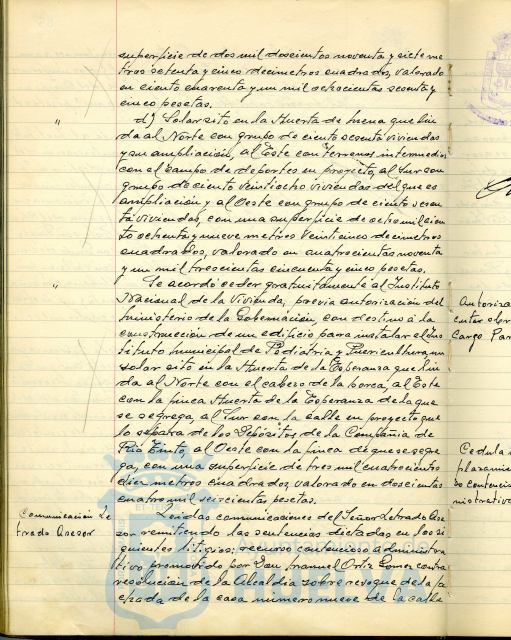 superficie de dos mil doscientos noventa y siete me
tros setenta y cinco decimetros cuadrados, valorado
en ciento cuarenta y un mil ochocientas sesenta y
cinco pesetas.
d) Solar sito en la Huerta de Mena que lin
da al Norte con grupo de ciento sesenta viviendas
y su ampliación, al Este con terrenos intermedios
con el Campo de deportes en proyecto, al Sur con
grupo de ciento veintiocho viviendas del que es
ampliación y al Oeste con grupo de ciento sesen
ta viviendas, con una superficie de ocho mil cien
to ochenta y nueve metros veinticinco decimetros
cuadrados, valorado en cuatrocientas noventa
y un mil trescientas cincuenta y cinco pesetas.
Se acordó ceder gratuitamente al Instituto
Nacional de la Vivienda, previa autorización del
Ministerio de la Gobernación, con destino a la
construcción de un edificio para instalar el Ins
tituto Municipal de Pediatria y Puericultura, un
solar sito en la Huerta de la Esperanza que lin
da al Norte con el cabezo de la horca, al Este
con la finca Huerta de la Esperanza de la que
se segrega, al Sur con la calle en proyecto que
lo separa de los Depósitos de la Compañia de
Rio Tinto, al Oeste con la finca de que se segre
ga, con una superficie de tres mil cuatrocientos
diez metros cuadrados, valorado en doscientas
cuatro mil seiscientas pesetas.
Comunicación Le
trado Asesor
Leidas comunicaciones del Señor Letrado Ase
sor remitiendo las sentencias dictadas en los si
guientes litigios: recurso contencioso administra
tivo promovido por Don Manuel Ortiz Gomez contra
resolución de la Alcaldia sobre revoque de la fa
chada de la casa numero nueve de la calle
Autoriza
cutar obr
Cargo Par
Cedula
plazamie
do contencio
nistrativo